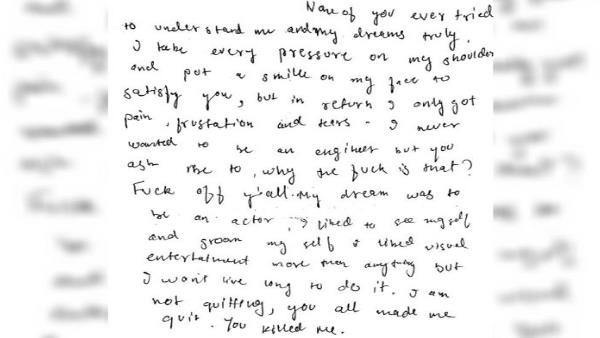 None of you ever tried
to understand me and my dreams truly.
I take every pressure on my shoulder
and put a smile on my face to
satisfy you, but in return I only got
pain, frustation and tears - I never
wanted to be an engineer but you
ask me to, why the fuck is that?
Fuck off y'all. my dream was to
be an actor, I liked to see myself
and groom my self I liked visual
entertainment more than anything but
I won't live long to do it. I am
not quitting, you all made me
quit. You killed me.